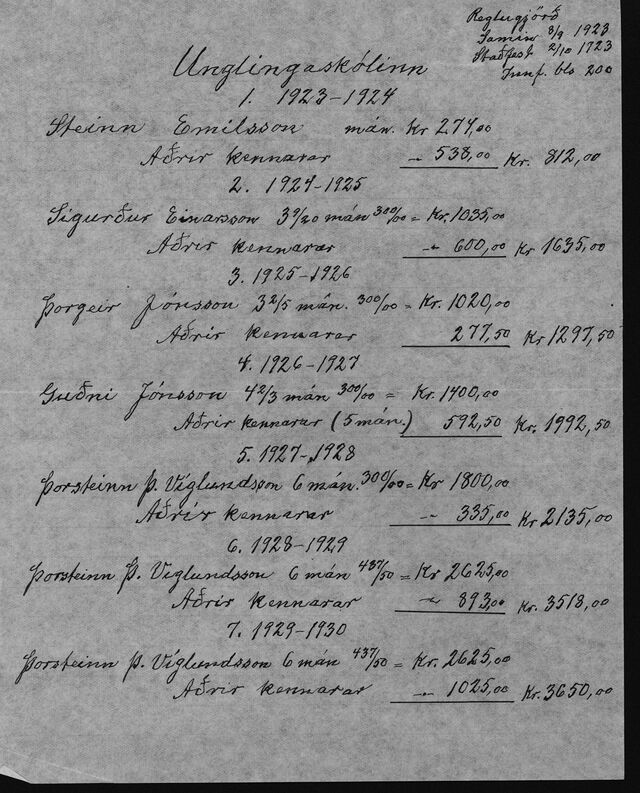 Reglugjörð
Samin 8/9 1923
Staðfest 2/10 1723
bls 200
Unglingaskólinn
1. 1923-1924
Steinn Emilsson mán. Kr 274,00
Aðrir kennarar -"- 538,00 Kr. 812,00
2. 1924-1925
Sigurður Einarsson 3 9/20 mán 300/00 = Kr. 1035,00
Aðrir kennarar -"- 600,00 Kr 1635,00
3. 1925-1926
Þorgeir Jónsson 3 2/5 mán. 300/00 = Kr. 1020,00
Aðrir kennarar 277,50 Kr 1297,50
4. 1926-1927
Guðni Jónsson 4 2/3 mán 300/00 = Kr. 1400,00
Aðrir kennarar (5 mán.) 592,50 Kr. 1992,50
5. 1927-1928
Þorsteinn Þ. Víglundsson 6 mán. 300/00 = Kr 1800,00
Aðrir kennarar -"- 335,00 Kr 2135,00
6. 1928-1929
Þorsteinn Þ. Víglundsson 6 mán 437/50 = Kr 2625,00
Aðrir kennarar -"- 893,00 Kr. 3518,00
7. 1929-1930
Þorsteinn Þ. Víglundsson 6 mán 437/50 = Kr. 2625,00
Aðrir kennarar -"- 1025,00 Kr. 3650,00